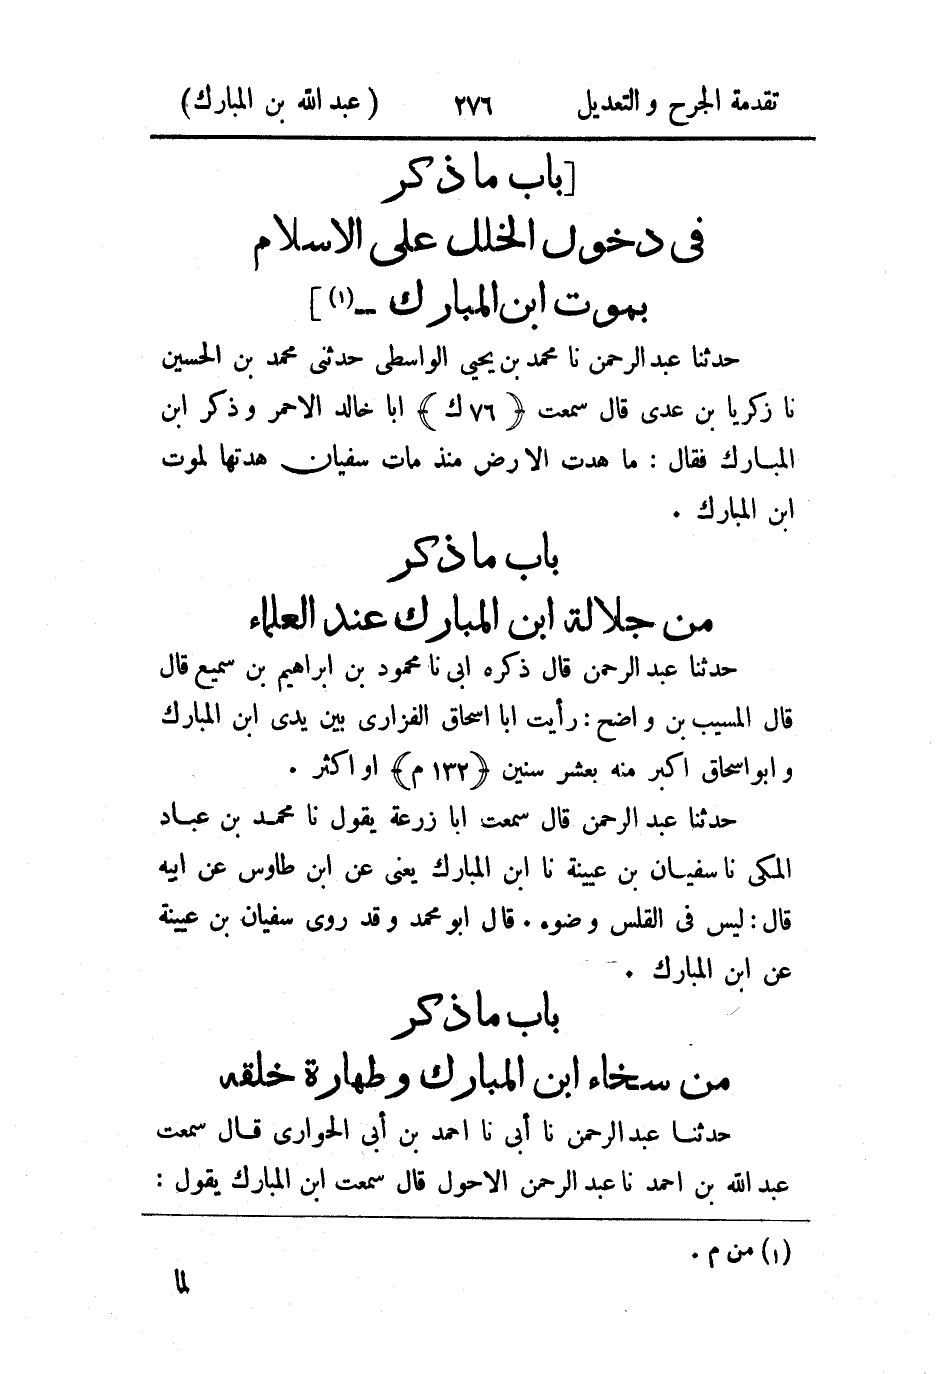 تقدمة الجرح والتعديل ٢٧٦ (عبد الله بن المبارك)
[باب ما ذكر
فى دخول الخلل على الاسلام
بموت ابن المبارك ــ(١)]
حدثنا عبد الرحمن نا محمد بن يحيى الواسطى حدثنى محمد بن الحسين
نا زكريا بن عدى قال سمعت ﴿٧٦ ك﴾ ابا خالد الاحمر وذكر ابن
المبارك فقال : ما هدت الارض منذ مات سفيان هدتها لموت
ابن المبارك .
باب ما ذكر
من جلالة ابن المبارك عند العلماء
حدثنا عبد الرحمن قال ذكره ابى نا محمود بن ابراهيم بن سميع قال
قال المسيب بن واضح : رأيت ابا اسحاق الفزارى بين يدى ابن المبارك
وابو اسحاق اكبر منه بعشر سنين ﴿١٣٢ م﴾ او اكثر .
حدثنا عبد الرحمن قال سمعت ابا زرعة يقول نا محمد بن عباد
المكى نا سفيان بن عيينة نا ابن المبارك يعنى عن ابن طاوس عن ابيه
قال : ليس فى القلس وضوء . قال ابو محمد وقد روى سفيان بن عيينة
عن ابن المبارك .
باب ما ذكر
من سخاء ابن المبارك وطهارة خلقه
حدثنا عبد الرحمن نا أبى نا احمد بن أبى الحوارى قال سمعت
عبد الله بن احمد نا عبد الرحمن الاحول قال سمعت ابن المبارك يقول :
(١) من م .
لما